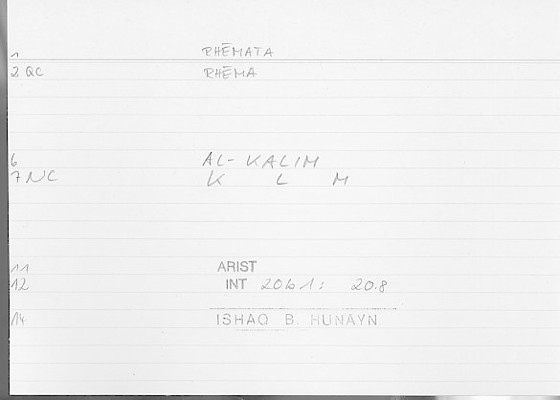 1 RHĒMATA
2 QC RHĒMA
6 AL-KALIM
7 NC K L M
11 ARIST
12 INT 20b1: 20.8
14 ISHAQ B. HUNAYN